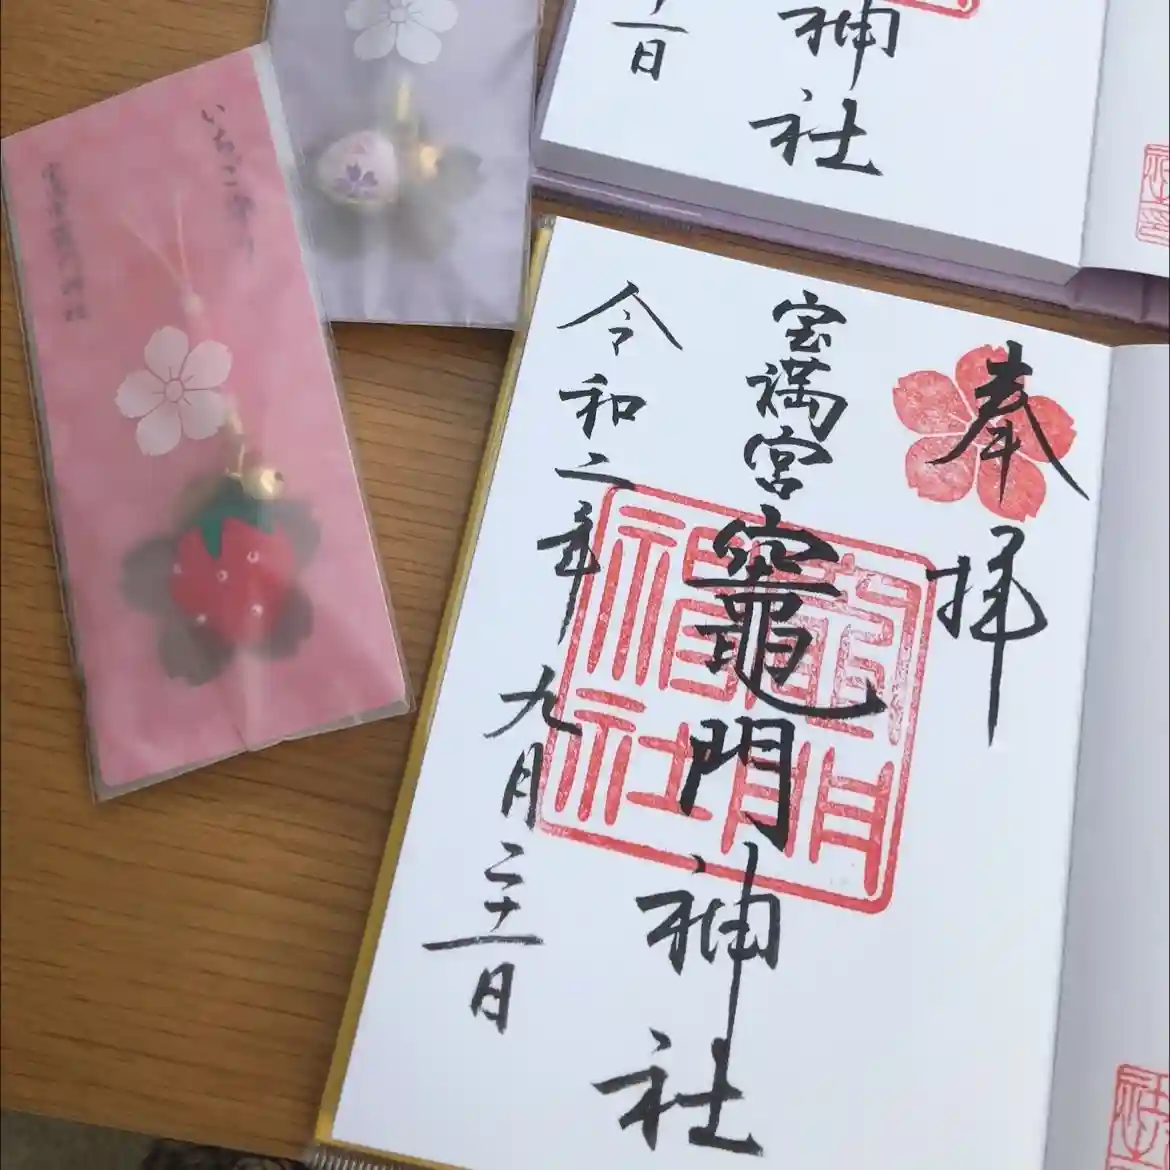 奉拝
宝満宮竈門神社
令和二年九月二十一日
竈門
神社
神社
一日
いちご守り